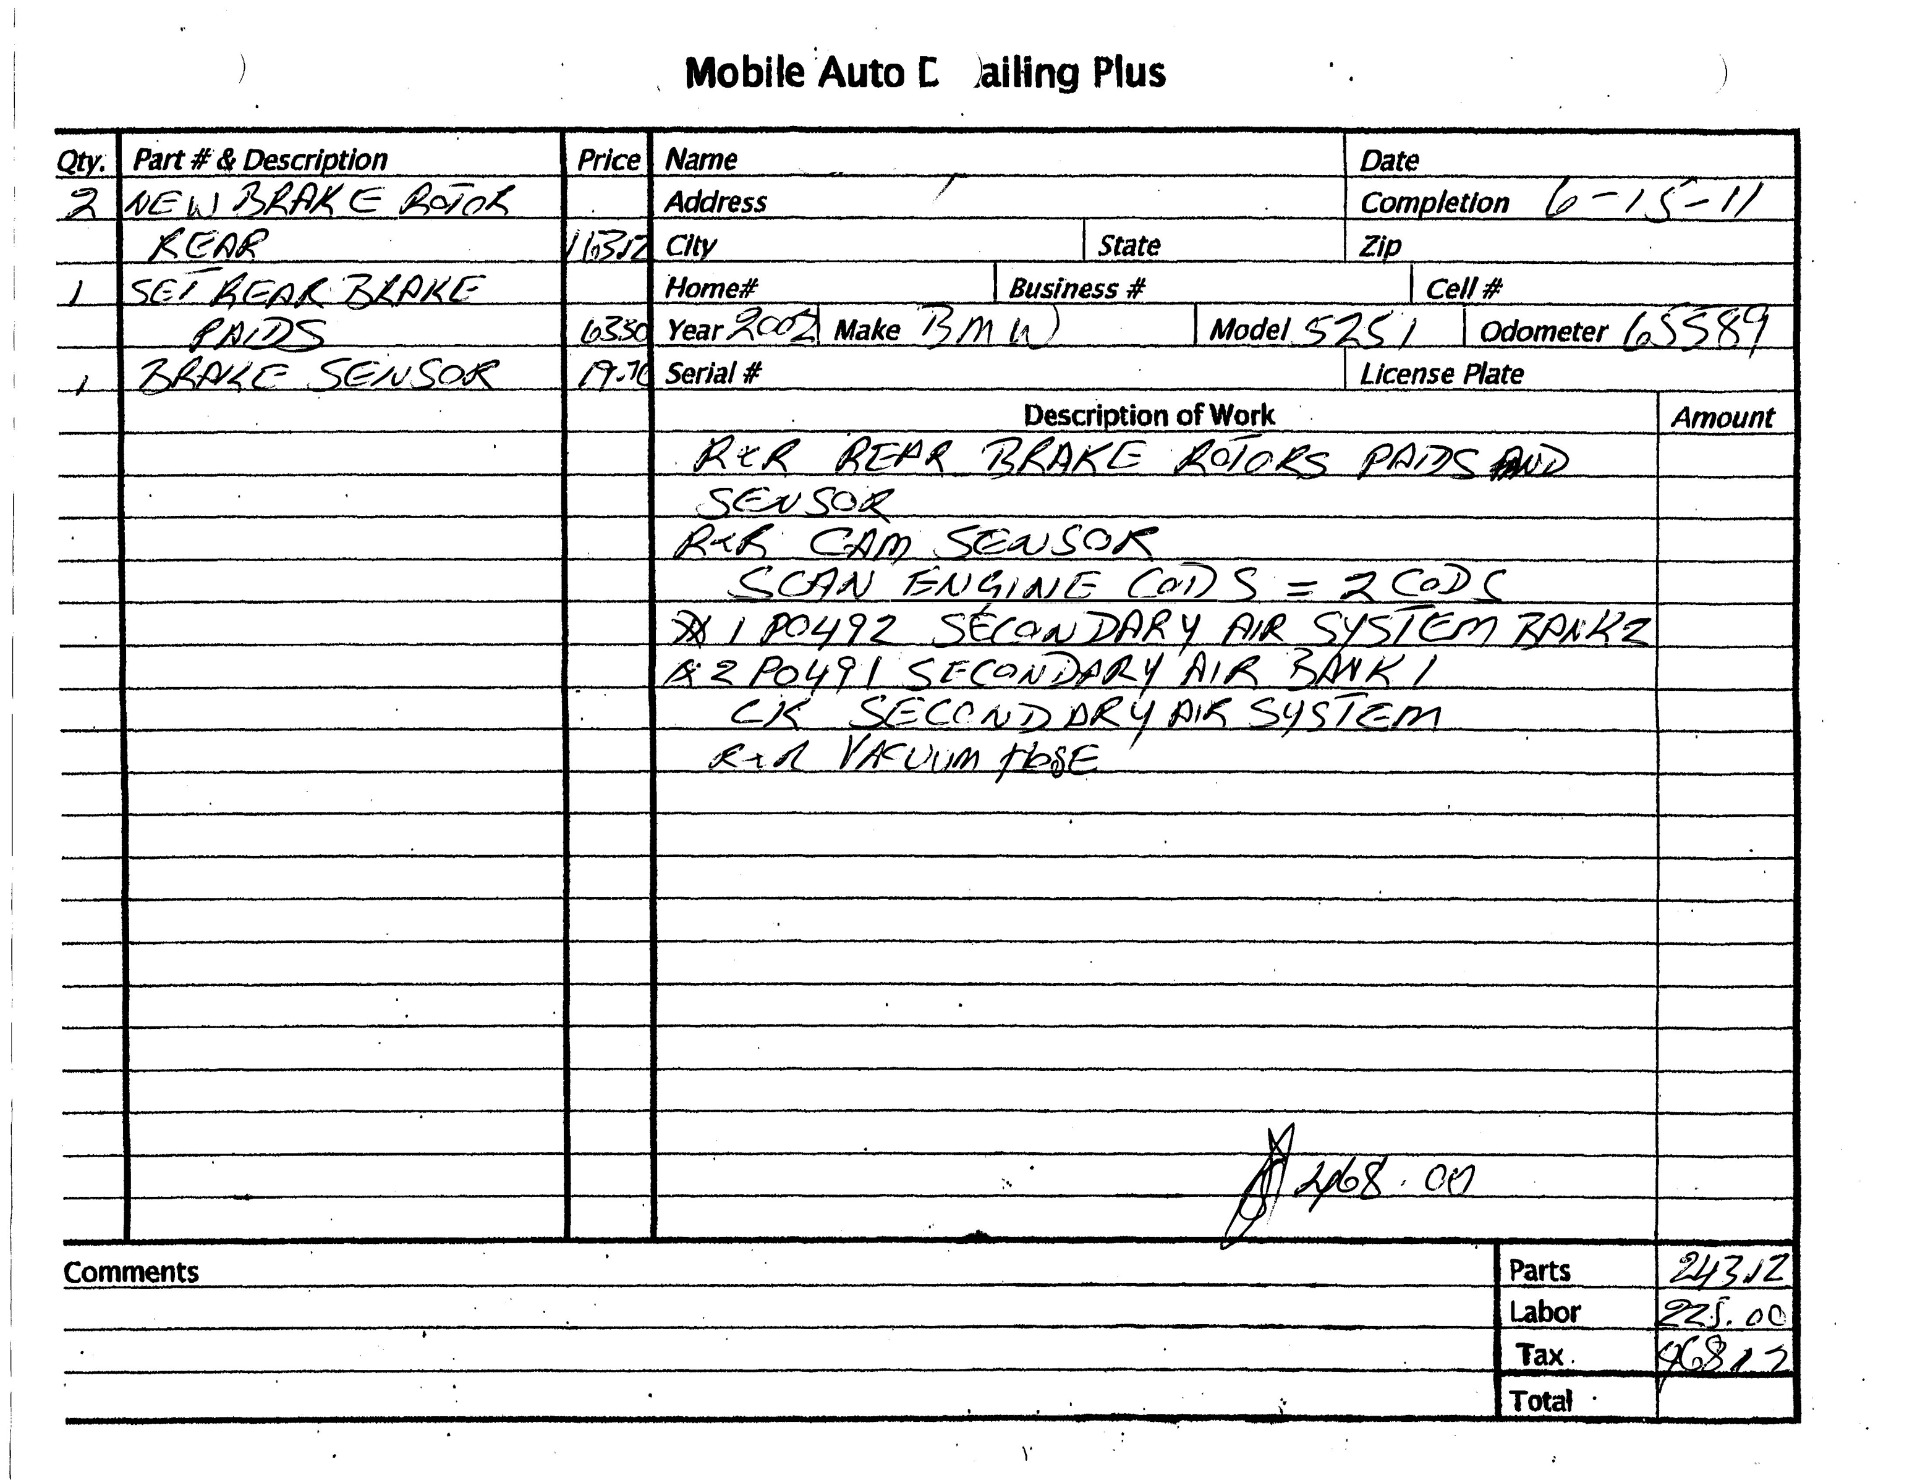 Mobile Auto D ailing Plus
Qty. Part # & Description Price Name Date
2 NEW BRAKE ROTOR Address Completion 6-15-11
REAR 163.12 City State Zip
1 SET REAR BRAKE Home# Business # Cell #
PAIDS 63.30 Year 2002 Make BMW Model 525I Odometer 65589
1 BRAKE SENSOR 19.70 Serial # License Plate
Description of Work Amount
R+R REAR BRAKE ROTORS PAIDS AND
SENSOR
R+R CAM SENSOR
SCAN ENGINE CODS = 2 CODS
1 P0492 SECONDARY AIR SYSTEM BANK 2
2 P0491 SECONDARY AIR BANK 1
CK SECONDARY AIR SYSTEM
R+R VACUUM HOSE
468.00
Comments Parts 243.12
Labor 225.00
Tax 468.12
Total